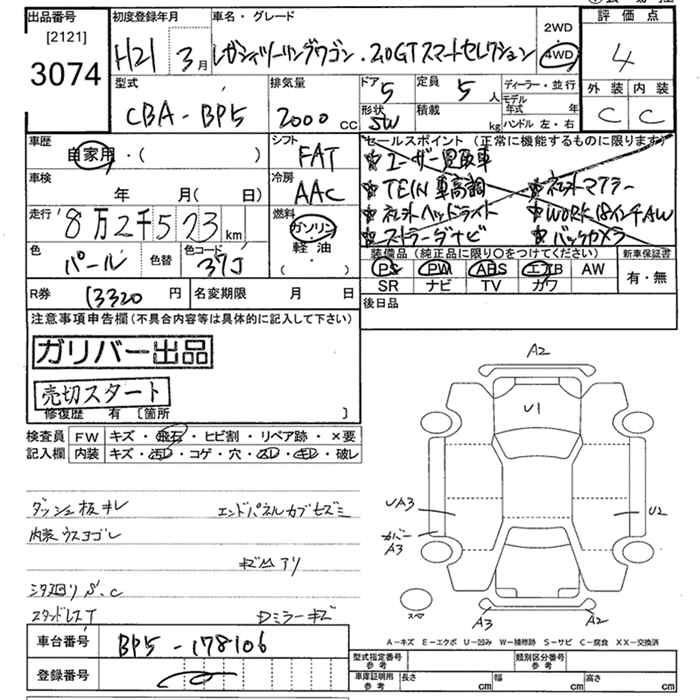 出品番号
[2121]
3074
初度登録年月
H21 3月
車名・グレード
レガシィツーリングワゴン . 2.0GTスマートセレクション
2WD
4WD
評価点
4
型式
CBA-BP5
排気量
2000 cc
ドア
5
定員
5 人
形状
SW
積載
kg
ディーラー・並行
モデル年式 年
ハンドル 左・右
外装 内装
C C
車歴
自家用・( )
シフト
FAT
車検
年 月( 日)
冷房
AAC
走行
8万2千573 km
燃料
ガソリン
軽油
( ・ )
色
パール
色替
色コード
37J
セールスポイント (正常に機能するものに限ります)
☆ユーザー買取車
☆TEIN車高調 ☆社外マフラー
☆社外ヘッドライト ☆WORK18インチAW
☆ストラーダナビ ☆バックカメラ
装備品 (純正品に限り〇をつけてください)
PS PW ABS エアB AW
SR ナビ TV カワ
新車保証書
有・無
R券 13320 円
名変期限 月 日
後日品
注意事項申告欄(不具合内容等は具体的に記入して下さい)
ガリバー出品
売切スタート
修復歴 有 [箇所 ]
検査員 FW キズ・飛石・ヒビ割・リペア跡・×要
記入欄 内装 キズ・汚レ・コゲ・穴・スレ・キレ・破レ
ダッシュ板キレ エンドパネルカブセズミ
内装ウスヨゴレ
キズ凹アリ
シタ廻りS.C
スタッドレスT Dミラーキズ
A2
U1
UA3
U2
カバーA3
スペ
A3
A2
A-キズ E-エクボ U-凹み W-補修跡 S-サビ C-腐食 XX-交換済
車台番号 BP5-178106
登録番号
型式指定番号
参考
類別区分番号
参考
車庫証明用
参考
長さ cm
幅 cm
高さ cm